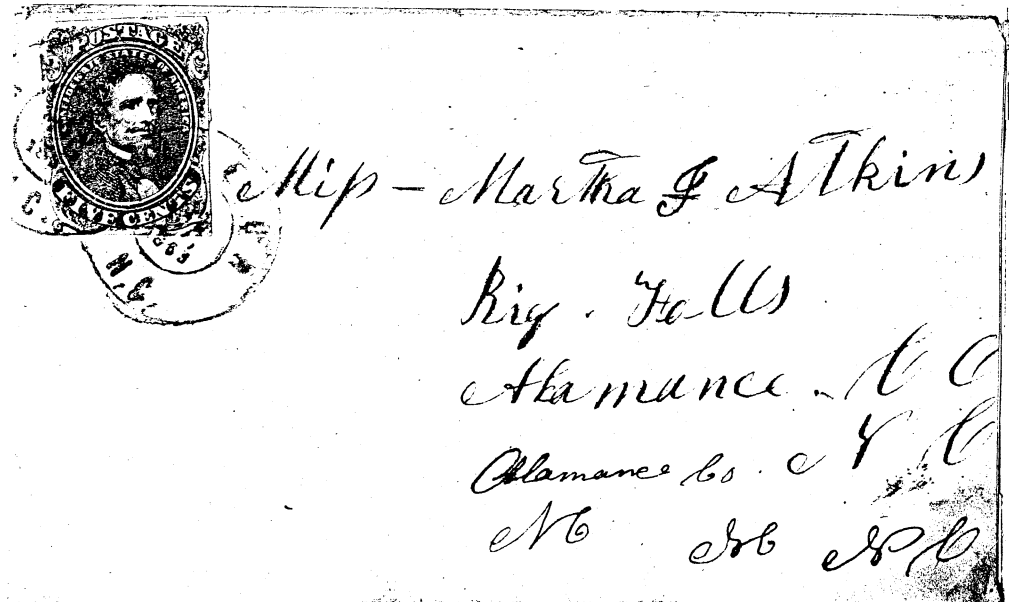 POSTAGE
CONFEDERATE STATES OF AMERICA
FIVE CENTS
N.C.
Miss – Martha J Atkins
Big . Falls
Alamance . C C
Alamance Co . N C
NC NC N C